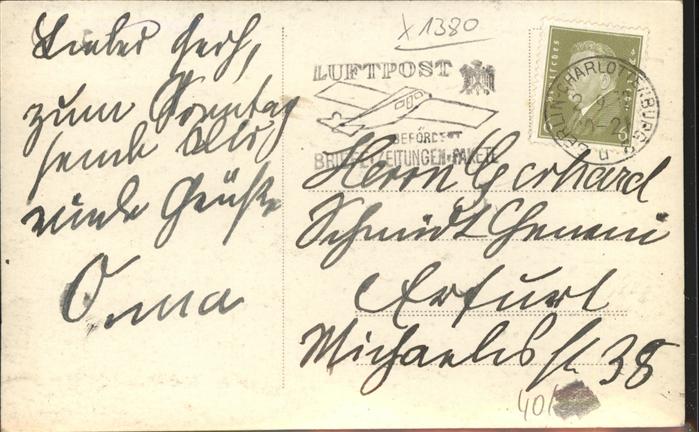 Lieber Gerh,
zum Sonntag
sende Dir
viele Grüße
Oma
x 1380
LUFTPOST
BEFÖRDERT
BRIEFE ZEITUNGEN PAKETE
BERLIN-CHARLOTTENBURG
6
Herrn Gerhard
Schmidt
Erfurt
Michaelisst. 38
40/